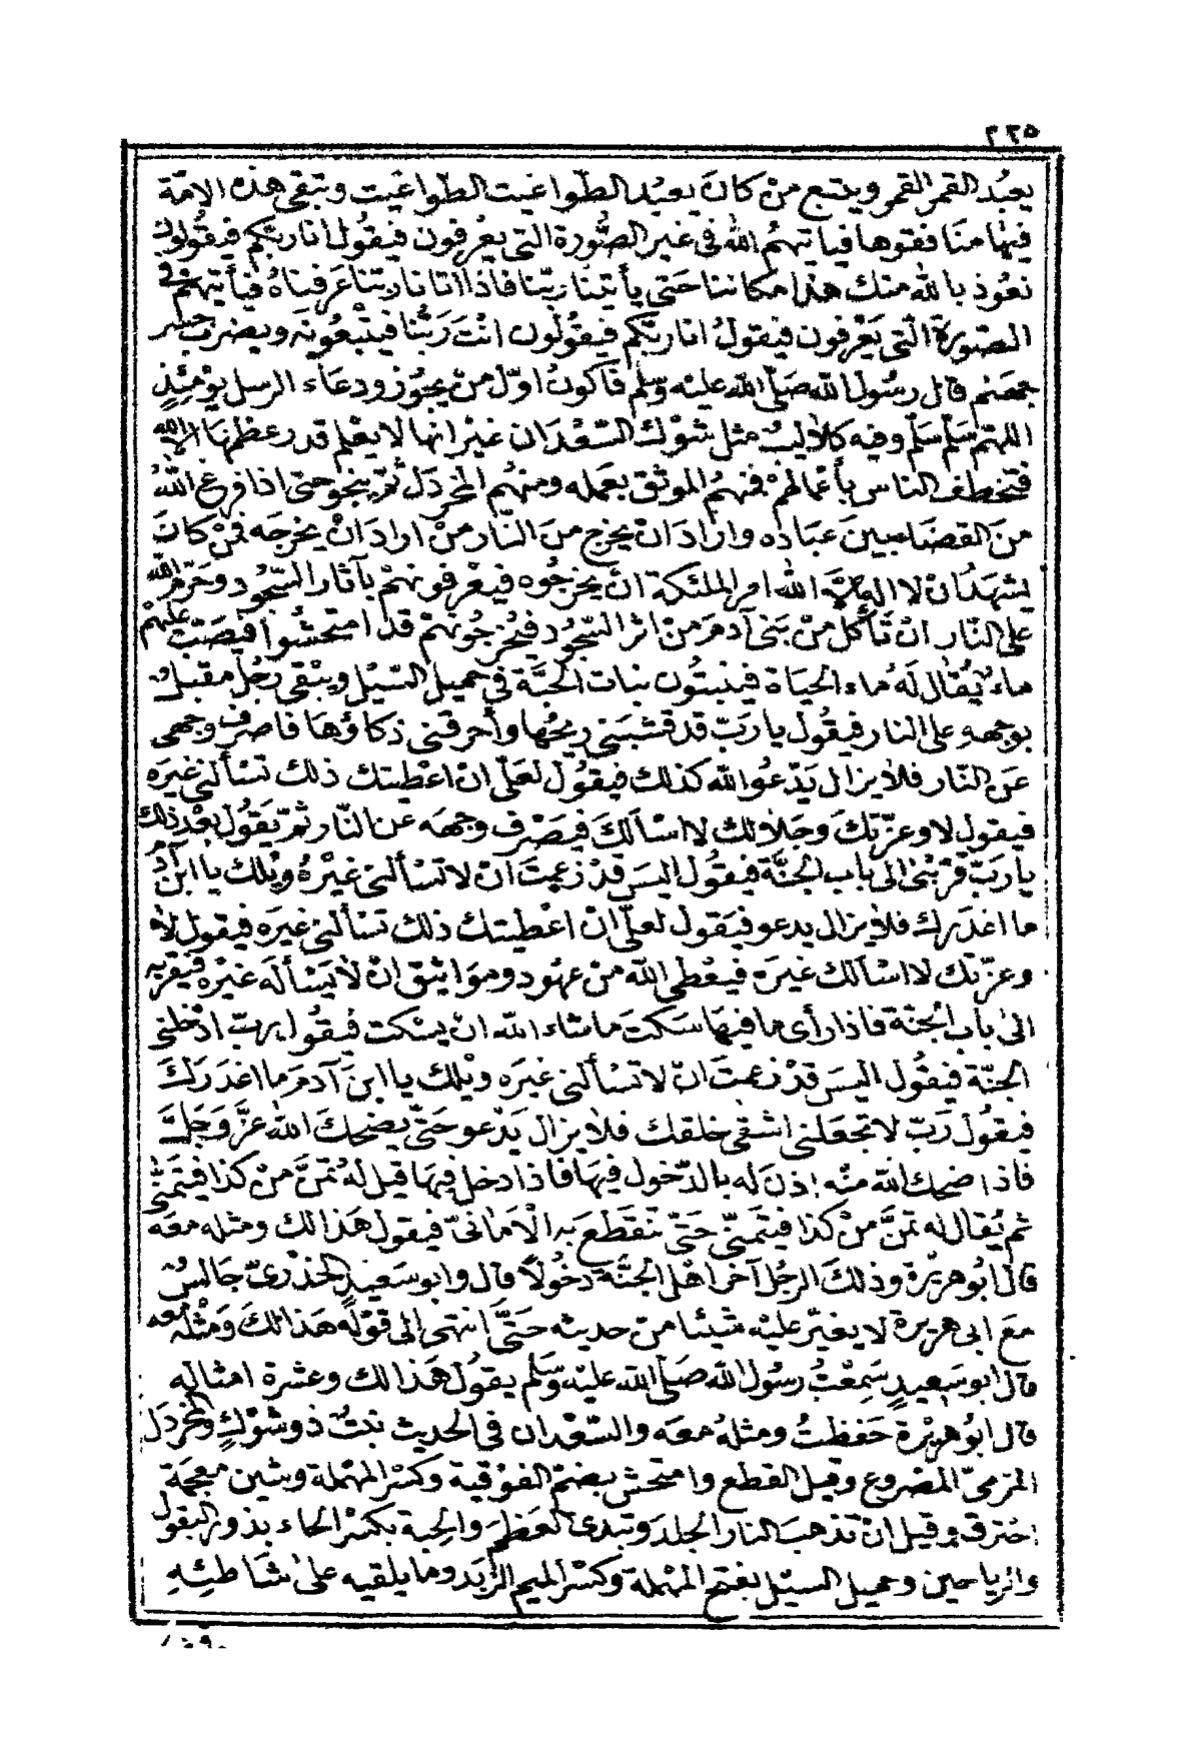 ٢٢٥
يعبُد القمر القمر ويتبع من كانَ يعبُد الطّواغيت الطّواغيت وتبقى هذه الامّة
فيها منافقوها فيأتيهمُ الله فى غير الصُّورة التى يعْرفون فيقُول انا ربّكم فيقُولون
نعُوذ بالله منك هذا مكاننا حَتى يأتيَنا ربّنا فاذا اتانا ربّنا عَرفناهُ فيأتيهم فى
الصّورة التى يَعْرفون فيقولُ انا ربّكم فيقُولُون انْتَ رَبُّنا فيَتْبعُونَه ويضرب جسر
جهنم قال رسُول الله صَلى الله عليْه وسَلم فأكونُ اوّل منْ يجُوز ودعَاء الرسل يوْمَئِذٍ
اللهمّ سَلّم سَلّم وفيه كلاليبُ مثل شوْك السّعْدَان غيْر انها لا يعْلم قدر عظمهَا الا الله
فتخطف الناس بأعْمالهمْ فمنهُم الموثق بعَمله ومنهُم المخردَل ثمّ ينجو حتى اذا فرغ اللهُ
منَ القضَاء بينَ عبَاده وارادَ انْ يخرج منَ النّار منْ ارادَ انْ يخرجَه ممنْ كانَ
يشهَدُ انْ لا اله الّا الله امر الملئكة انْ يخرجُوه فيعْرفونهمْ بآثار السّجُود وحَرّم الله
على النّار انْ تأكل منْ بَنى آدمَ منْ اثر السّجُود فيُخرجُونَهمْ قد امتحشُوا فيصَبّ عليْهمْ
ماء يُقال لَهُ ماء الحيَاة فينبتُون نبات الحبّة فى حميل السّيْل ويبْقى رجُل مقبلٌ
بوجههِ على النار فيقُول يا ربّ قد قشبَنى ريحُها وأحرقنى ذكاؤهَا فاصرف وجهى
عَن النّار فلا يزال يَدْعُو الله كذلك فيقُول لعَلّى انْ اعْطيتك ذلك تسْألنى غيْرَه
فيقول لا وعزّتكَ وجَلالك لا اسْألكَ فيصَرْف وجهَه عن النّار ثمّ يَقُول بعْد ذلك
يا ربّ قرّبْنى الى باب الجنَّة فيقُول اليسَ قدْ زعمتَ انْ لا تسْألنى غيْرهُ ويْلك يا ابنَ آدمُ
ما اغدَرك فلا يزال يدعو فيَقول لعلّى انْ اعْطيتك ذلك تسْألنى غيرَه فيقول لا
وعزّتك لا اسْألك غيرَه فيعْطى الله منْ عهُود ومَوَاثيق انْ لا يَسْألهَ غيْره فيقربه
الى باب الجنّة فاذا رأى ما فيهَا سَكتَ ماشاء الله انْ يسْكت فيقُول رب ادْخلنى
الجنّة فيقُول اليسَ قدْ زعمتَ انْ لا تسْألنى غيرَه ويْلك يا ابنَ آدمَ ما اغدَركَ
فيقُول رَبّ لا تجعَلنى اشقى خلقك فلا يزال يَدْعو حَتّى يضحكَ الله عزَّ وَجَلَّ
فاذا ضحكَ الله منْه اذنَ له بالدّخول فيهَا فاذا دخل فيهَا قيل لهُ تمنَّ منْ كذا فيتمنّى
ثم يُقال له تمنَّ منْ كذا فيتَمَنّى حَتّى تَقَطعَ به الْاَمانىّ فيقول هَذا لك ومثله معَه
قال ابُو هريْرَة وذلكَ الرجُل آخر اهْل الجنَّة دخُولاً قال وابو سَعيدٍ الخدْرىّ جَالسٌ
معَ ابى هريْرة لا يغيّر عليْه شيئا من حديثه حَتَّى انتهى الى قوْله هَذا لكَ وَمثْلهُ معه
قال ابو سَعيدٍ سَمعْتُ رسُول الله صَلى الله عليْه وَسَلم يقولُ هَذا لك وعشرة امثاله
قال ابُو هريْرة حَفظتُ ومثلهُ معَه والسّعْدان فى الحديث نبْتٌ ذو شوْكٍ والمخردَل
المرمىّ المصروع وقيل القطع وامتحش بضمّ الفوْقية وكسْر المهْملة وشين معجَمة
احترق وقيل انْ تذهبَ النار الجلدَ وتبدى العَظمَ والحبة بكسْر الحاء بذور البقول
والرياحين وحميل السيْل بفتح المهْملة وكسْر الميم الزّبَد وما يلقيه على شَاطئِهِ